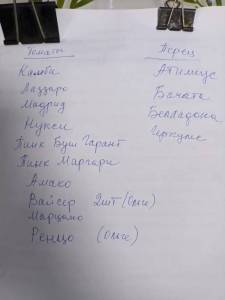 Томаты
Камби
Лаззаро
Мадрид
Нукси
Пинк Буш Гарант
Пинк Маргари
Амако
Вайсер 2шт (Ольге)
Марцано
Ренцо (Ольге)
Перец
Атимус
Баната
Белладона
Геркулес